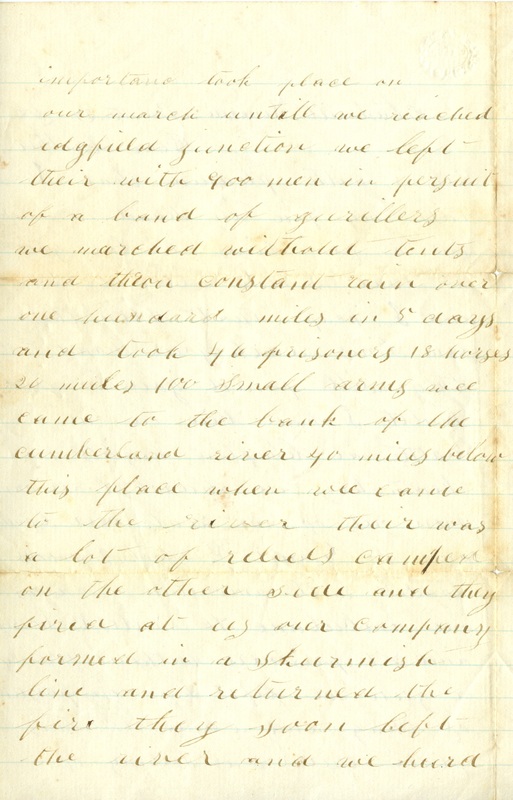 importanc took place on
our march untill we reached
edgfield junction we left
their with 900 men in persuit
of a band of gurillers
we marched witholet tents
and throu constant rain over
one hundard miles in 5 days
and took 46 prisoners 18 horses
20 mules 100 small arms wee
came to the bank of the
cumberland river 40 miles below
this place when wee came
to the river their was
a lot of rebels campen
on the other side and they
fired at us our company
formed in a skurmish
line and returned the
fire they soon left
the river and we hurd